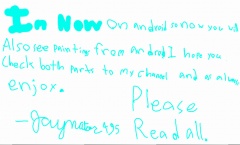 Im Now On android so now you will
Also see paintings from Android I hope you
Check both parts to my channel and as always
enjoy.
Please
Read all.